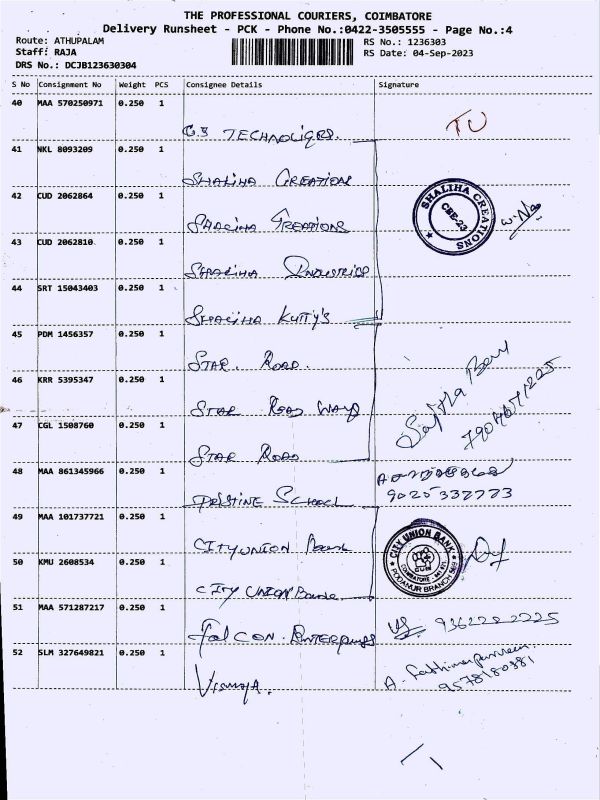 THE PROFESSIONAL COURIERS, COIMBATORE
Delivery Runsheet - PCK - Phone No.:0422-3505555 - Page No.:4
Route: ATHUPALAM
Staff: RAJA
DRS No.: DCJB123630304
RS No.: 1236303
RS Date: 04-Sep-2023
S No Consignment No Weight PCS Consignee Details Signature
40 MAA 570250971 0.250 1
TECHNOLIQES. TU
41 NKL 8093209 0.250 1
SHALIHA CREATIONS
42 CUD 2062864 0.250 1
SHALIHA CREATIONS
SHALIHA CREATIONS
CBE-23
43 CUD 2062810 0.250 1
SHALIHA INDUSTRIES
44 SRT 15043403 0.250 1
SHALIHA KUTTY'S
45 PDM 1456357 0.250 1
STAR. ROAD.
46 KRR 5395347 0.250 1
STAR ROAD WAYS
47 CGL 1508760 0.250 1
STAR ROAD
48 MAA 861345966 0.250 1
PRISTINE SCHOOL 9025332773
49 MAA 101737721 0.250 1
CITY UNION Bank
CITY UNION BANK
PODANUR BRANCH
50 KMU 2608534 0.250 1
CITY UNION Bank
51 MAA 571287217 0.250 1
FALCON. ENTERPRISES
52 SLM 327649821 0.250 1
A.
9578180381